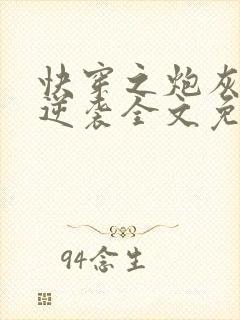 快穿之炮灰
逆袭全文免
94念生